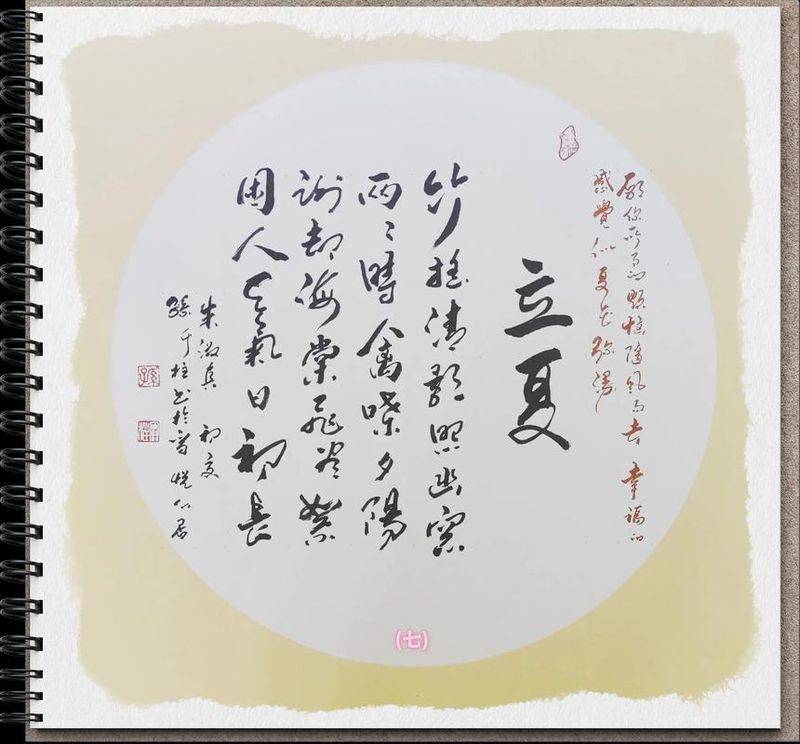 願你所有的煩惱隨風而去 幸福的
感覺似夏花弥漫
立夏
竹搖清影照幽窗
兩々時禽噪夕陽
謝却海棠飛盡絮
困人天氣日初長
朱淑真 初夏
千 書於 心居
(七)